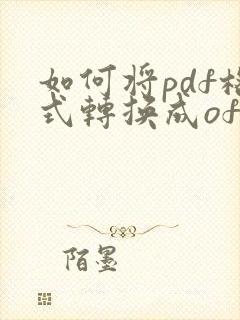 如何将pdf格
式轉換成of
陌墨